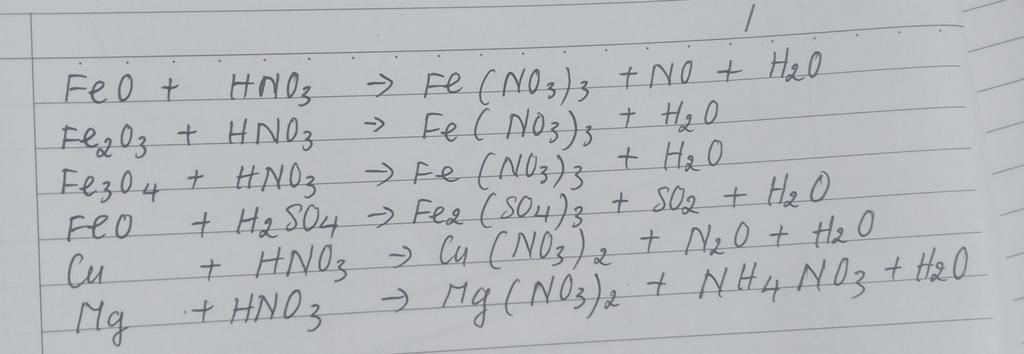 FeO + HNO₃ → Fe(NO₃)₃ + NO + H₂O
Fe₂O₃ + HNO₃ → Fe(NO₃)₃ + H₂O
Fe₃O₄ + HNO₃ → Fe(NO₃)₃ + H₂O
FeO + H₂SO₄ → Fe₂(SO₄)₃ + SO₂ + H₂O
Cu + HNO₃ → Cu(NO₃)₂ + N₂O + H₂O
Mg + HNO₃ → Mg(NO₃)₂ + NH₄NO₃ + H₂O